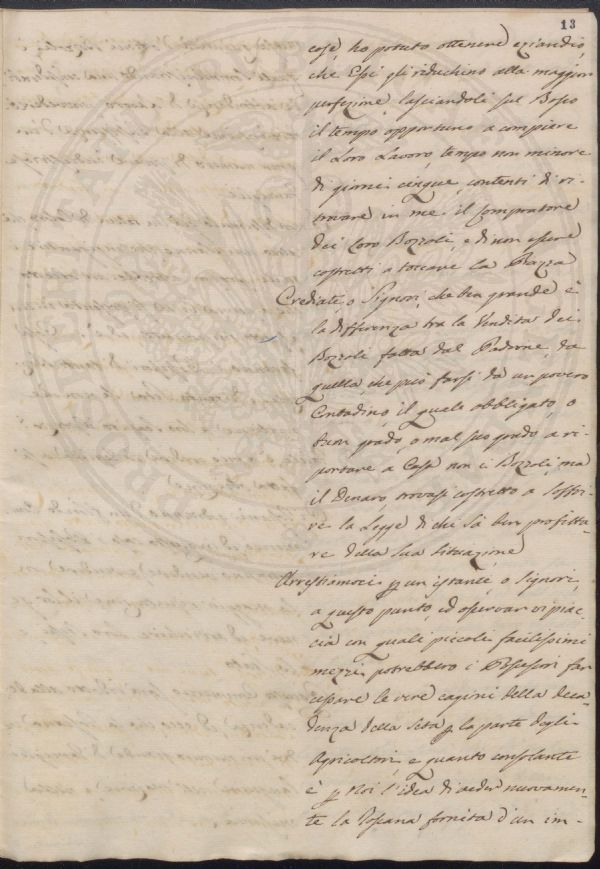 13
cose, ho potuto ottenere eziandio,
che Essi gli riduchino alla maggior
perfezione, lasciandoli sul Bosco
il tempo opportuno a compiere
il Loro Lavoro, tempo non minore
di giorni cinque, contenti di ri-
trovare in me il Compratore
dei Loro Bozzoli, e di non essere
costretti a toccare la Piazza
Crediate, o Signori, che ben grande è
la differenza tra la Vendita dei
Bozzoli fatta dal Padrone, da
quella, che può farsi da un povero
Contadino, il quale obbligato, o
suo grado, o mal suo grado, a ri-
portare a Casa non i Bozzoli, ma
il Denaro, trovasi costretto a soffri-
re la Legge di chi sà ben profitta-
re della sua situazione
Arrestiamoci p un istante, o Signori,
a questo punto, ed osservar vi piac-
cia con quali piccoli facilissimi
mezzi potrebbero i Possessori far
cessare le vere cagioni della deca-
denza della Seta p la parte degli
Agricoltori, e quanto consolante
è p Noi l'idea di veder nuovamen-
te la Toscana fornita d'un im-